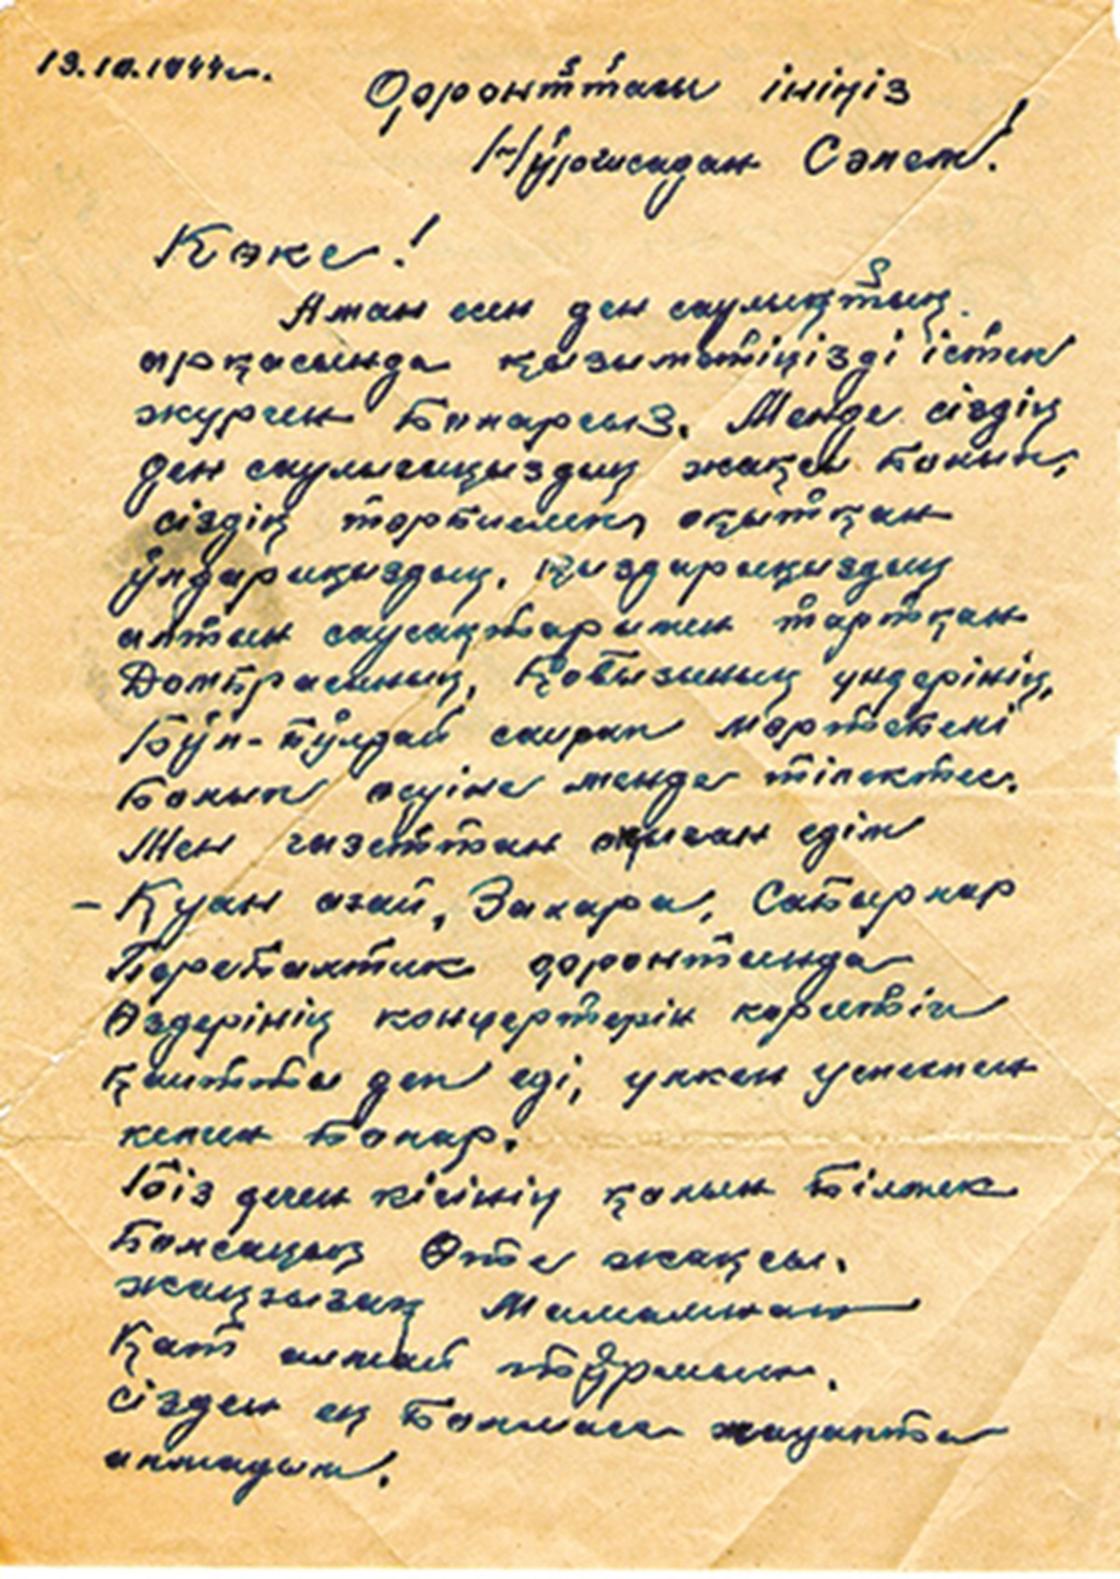 19.10.1944г.
Фронттағы ініңіз
Нұрғисадан Сәлем!
Көке!
Аман есен ден саулықтың
арқасында қызыметіңізді істеп
жүрген боларсыз. Менде сіздің
ден саулығыңыздың жақсы болып,
сіздің тәрбиелеп, оқытқан
ұлдарыңыздың, қыздарыңыздың
алтын саусақтарымен тартқан
Домбрасының, қобызының үндерінің,
бұл-бұлдай сайрап мәртебелі
болып өсуіне менде тілектес.
Мен газеттан оқыған едім
- Қуан ағай, Захара, Сабырлар
Перебалтик фронтында
Өздерінің концертерін көрсетіп
қайтты деп еді, үлкен успехпен
келген болар.
Біз деген кісінің қалын білмек
болсаңыз Өте жақсы.
жалғызақ Мамамнан
Қат алмай тұрмын.
сізден ең болмаса жауапта
алмадым.